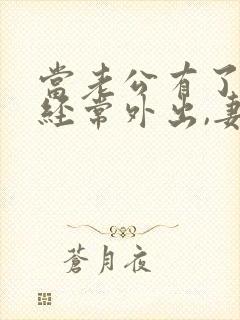 當老公有了
經常外出,妻
蒼月夜